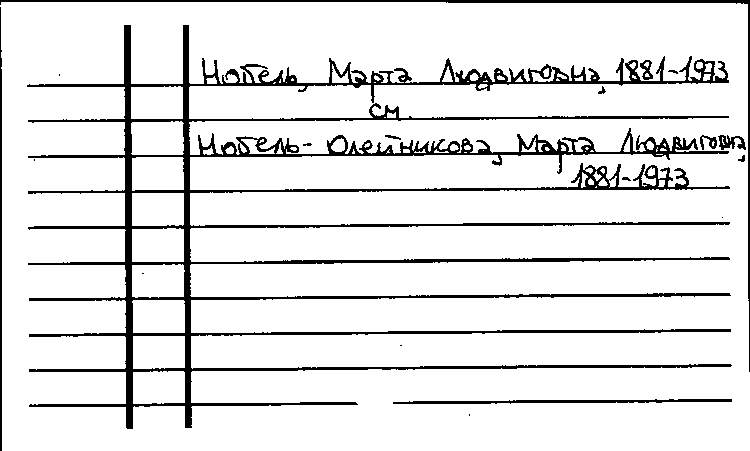 Нобель, Марта Людвиговна, 1881-1973
см.
Нобель-Олейникова, Марта Людвиговна,
1881-1973